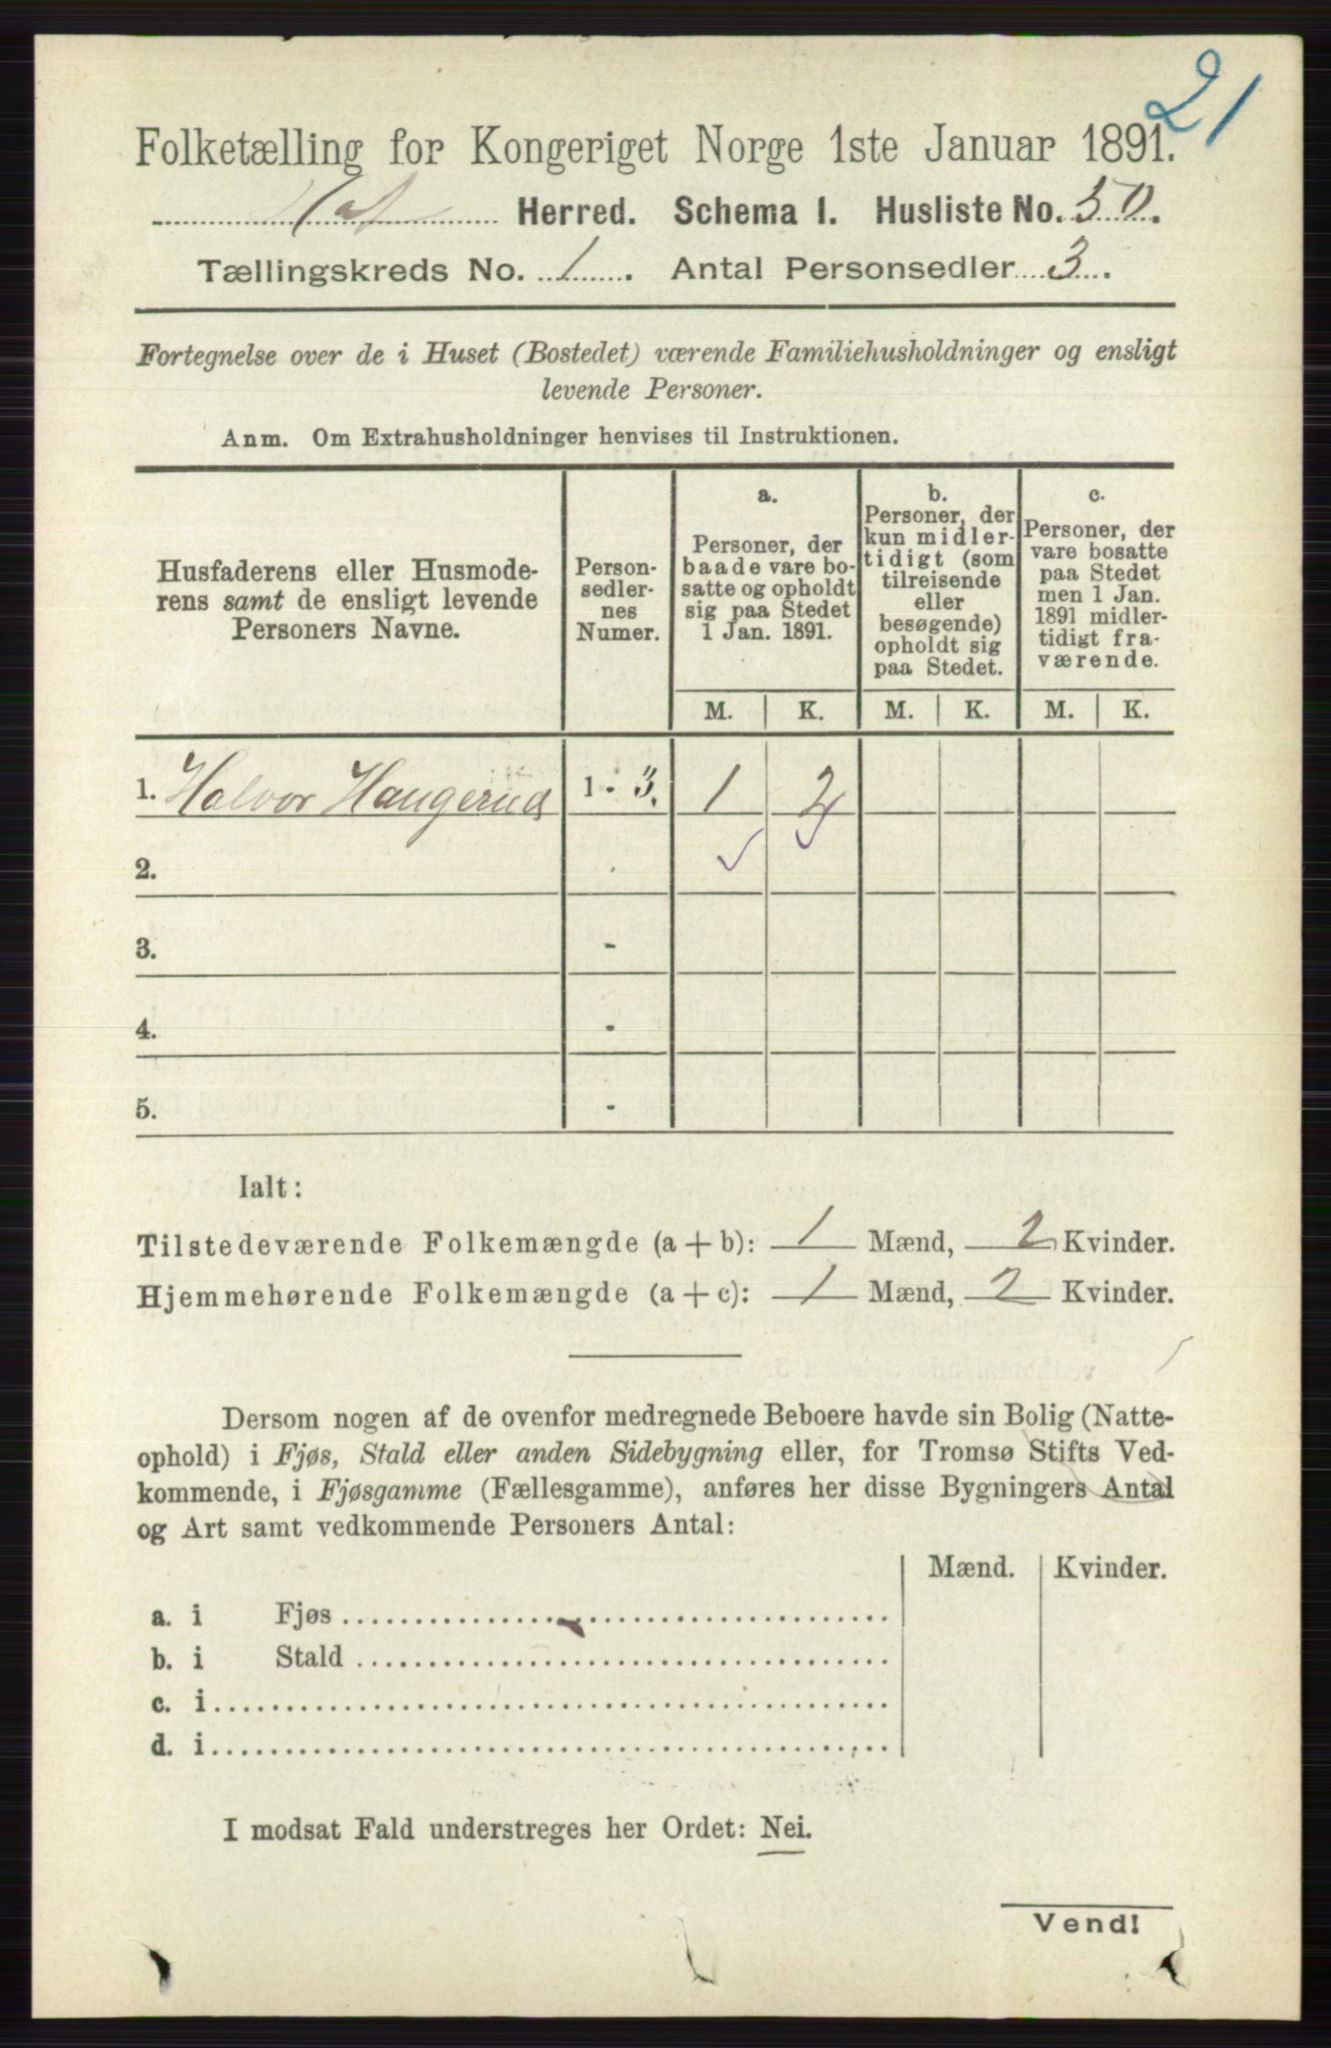 21
Folketælling for Kongeriget Norge 1ste Januar 1891.
Herred. Schema I. Husliste No. 50.
Tællingskreds No. 1. Antal Personsedler 3.
Fortegnelse over de i Huset (Bostedet) værende Familiehusholdninger og ensligt
levende Personer.
Anm. Om Extrahusholdninger henvises til Instruktionen.
Husfaderens eller Husmode-
rens samt de ensligt levende
Personers Navne.
Person-
sedler-
nes
Numer.
a.
Personer, der
baade vare bo-
satte og opholdt
sig paa Stedet
1 Jan. 1891.
b.
Personer, der
kun midler-
tidigt (som
tilreisende
eller
besøgende)
opholdt sig
paa Stedet.
c.
Personer, der
vare bosatte
paa Stedet
men 1 Jan.
1891 midler-
tidigt fra-
værende.
M. K. M. K. M. K.
1. Halvor Haugerud 1 - 3. 1 2
2.
3. -
4. -
5. -
Ialt:
Tilstedeværende Folkemængde (a + b): 1 Mænd, 2 Kvinder.
Hjemmehørende Folkemængde (a + c): 1 Mænd, 2 Kvinder.
Dersom nogen af de ovenfor medregnede Beboere havde sin Bolig (Natte-
ophold) i Fjøs, Stald eller anden Sidebygning eller, for Tromsø Stifts Ved-
kommende, i Fjøsgamme (Fællesgamme), anføres her disse Bygningers Antal
og Art samt vedkommende Personers Antal:
Mænd. Kvinder.
a. i Fjøs
b. i Stald
c. i
d. i
I modsat Fald understreges her Ordet: Nei.
Vend!